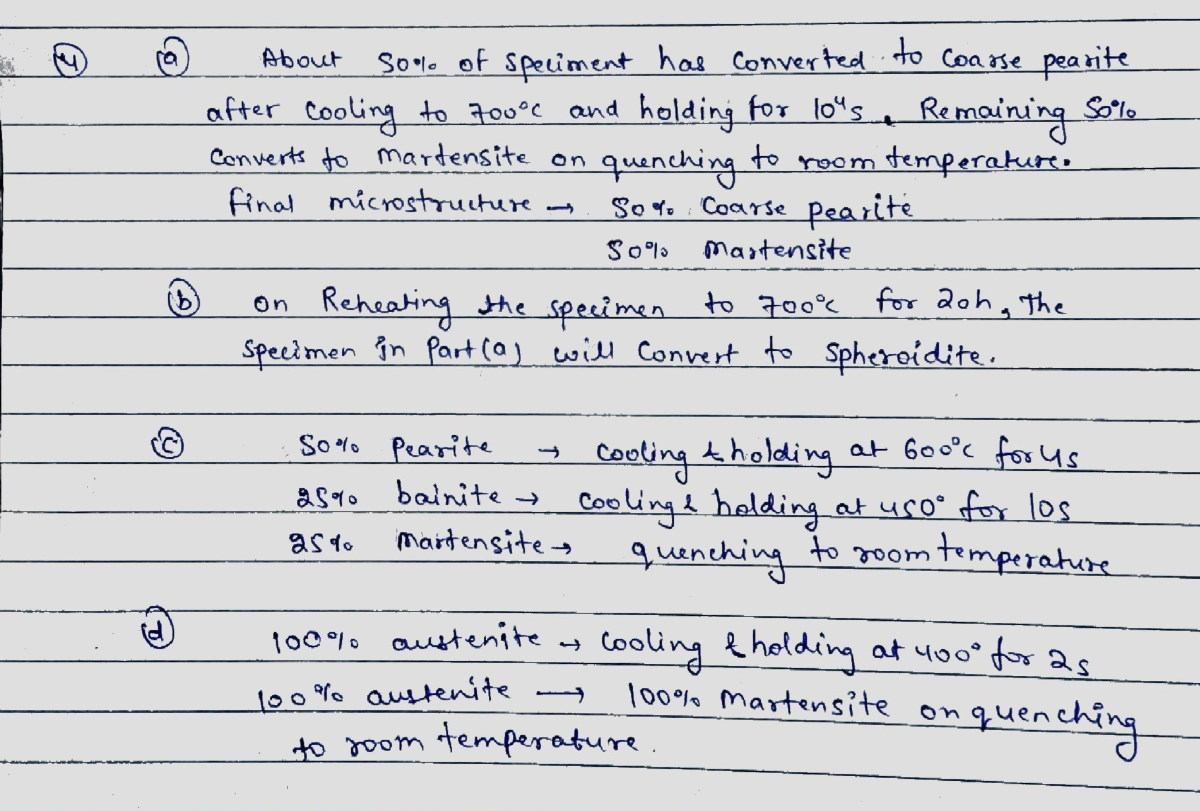 (4) (a) About 50% of speciment has converted to coarse pearite
after cooling to 700°c and holding for 10⁴s. Remaining 50%
Converts to martensite on quenching to room temperature.
final microstructure → 50% Coarse pearite
50% Martensite
(b) on Reheating the specimen to 700°c for 20h, The
specimen in Part(a) will Convert to Spheroidite.
(c) 50% Pearite → cooling & holding at 600°c for 4s
25% bainite → cooling & holding at 450° for 10s
25% Martensite → quenching to room temperature
(d) 100% austenite → cooling & holding at 400° for 2s
100% austenite → 100% Martensite on quenching
to room temperature.